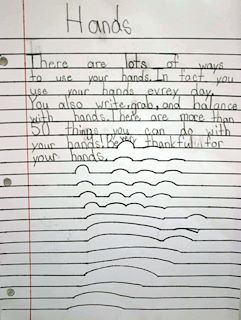 Hands
There are lots of ways
to use your hands. In fact, you
use your hands evrey day.
You also write, grab, and balance
with hands. There are more than
50 things you can do with
your hands. Be very thankful for
your hands.